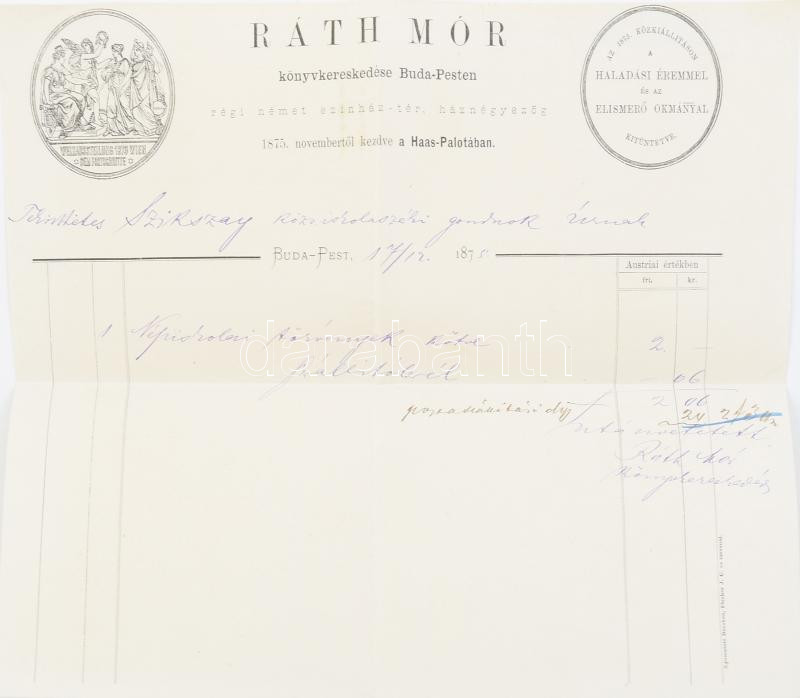 RÁTH MÓR
könyvkereskedése Buda-Pesten
régi német szinház-tér, háznégyszög
1875. novembertől kezdve a Haas-Palotában.
WELTAUSSTELLUNG 1873 WIEN
DEM FORTSCHRITTE
AZ 1873. KÖZKIÁLLITÁSON
A
HALADÁSI ÉREMMEL
ÉS AZ
ELISMERŐ OKMÁNYAL
KITÜNTETVE.
Tekintetes Szikszay községiskolaszéki gondnok Úrnak
BUDA-PEST, 17/12. 1875.
Austriai értékben
frt. kr.
1 Népiskolai törvények kötve 2 —
Szállitólevél 06
2 06
postaszállitási díj 24
Utánvételezett
Ráth Mór
könyvkereskedés
darabanth